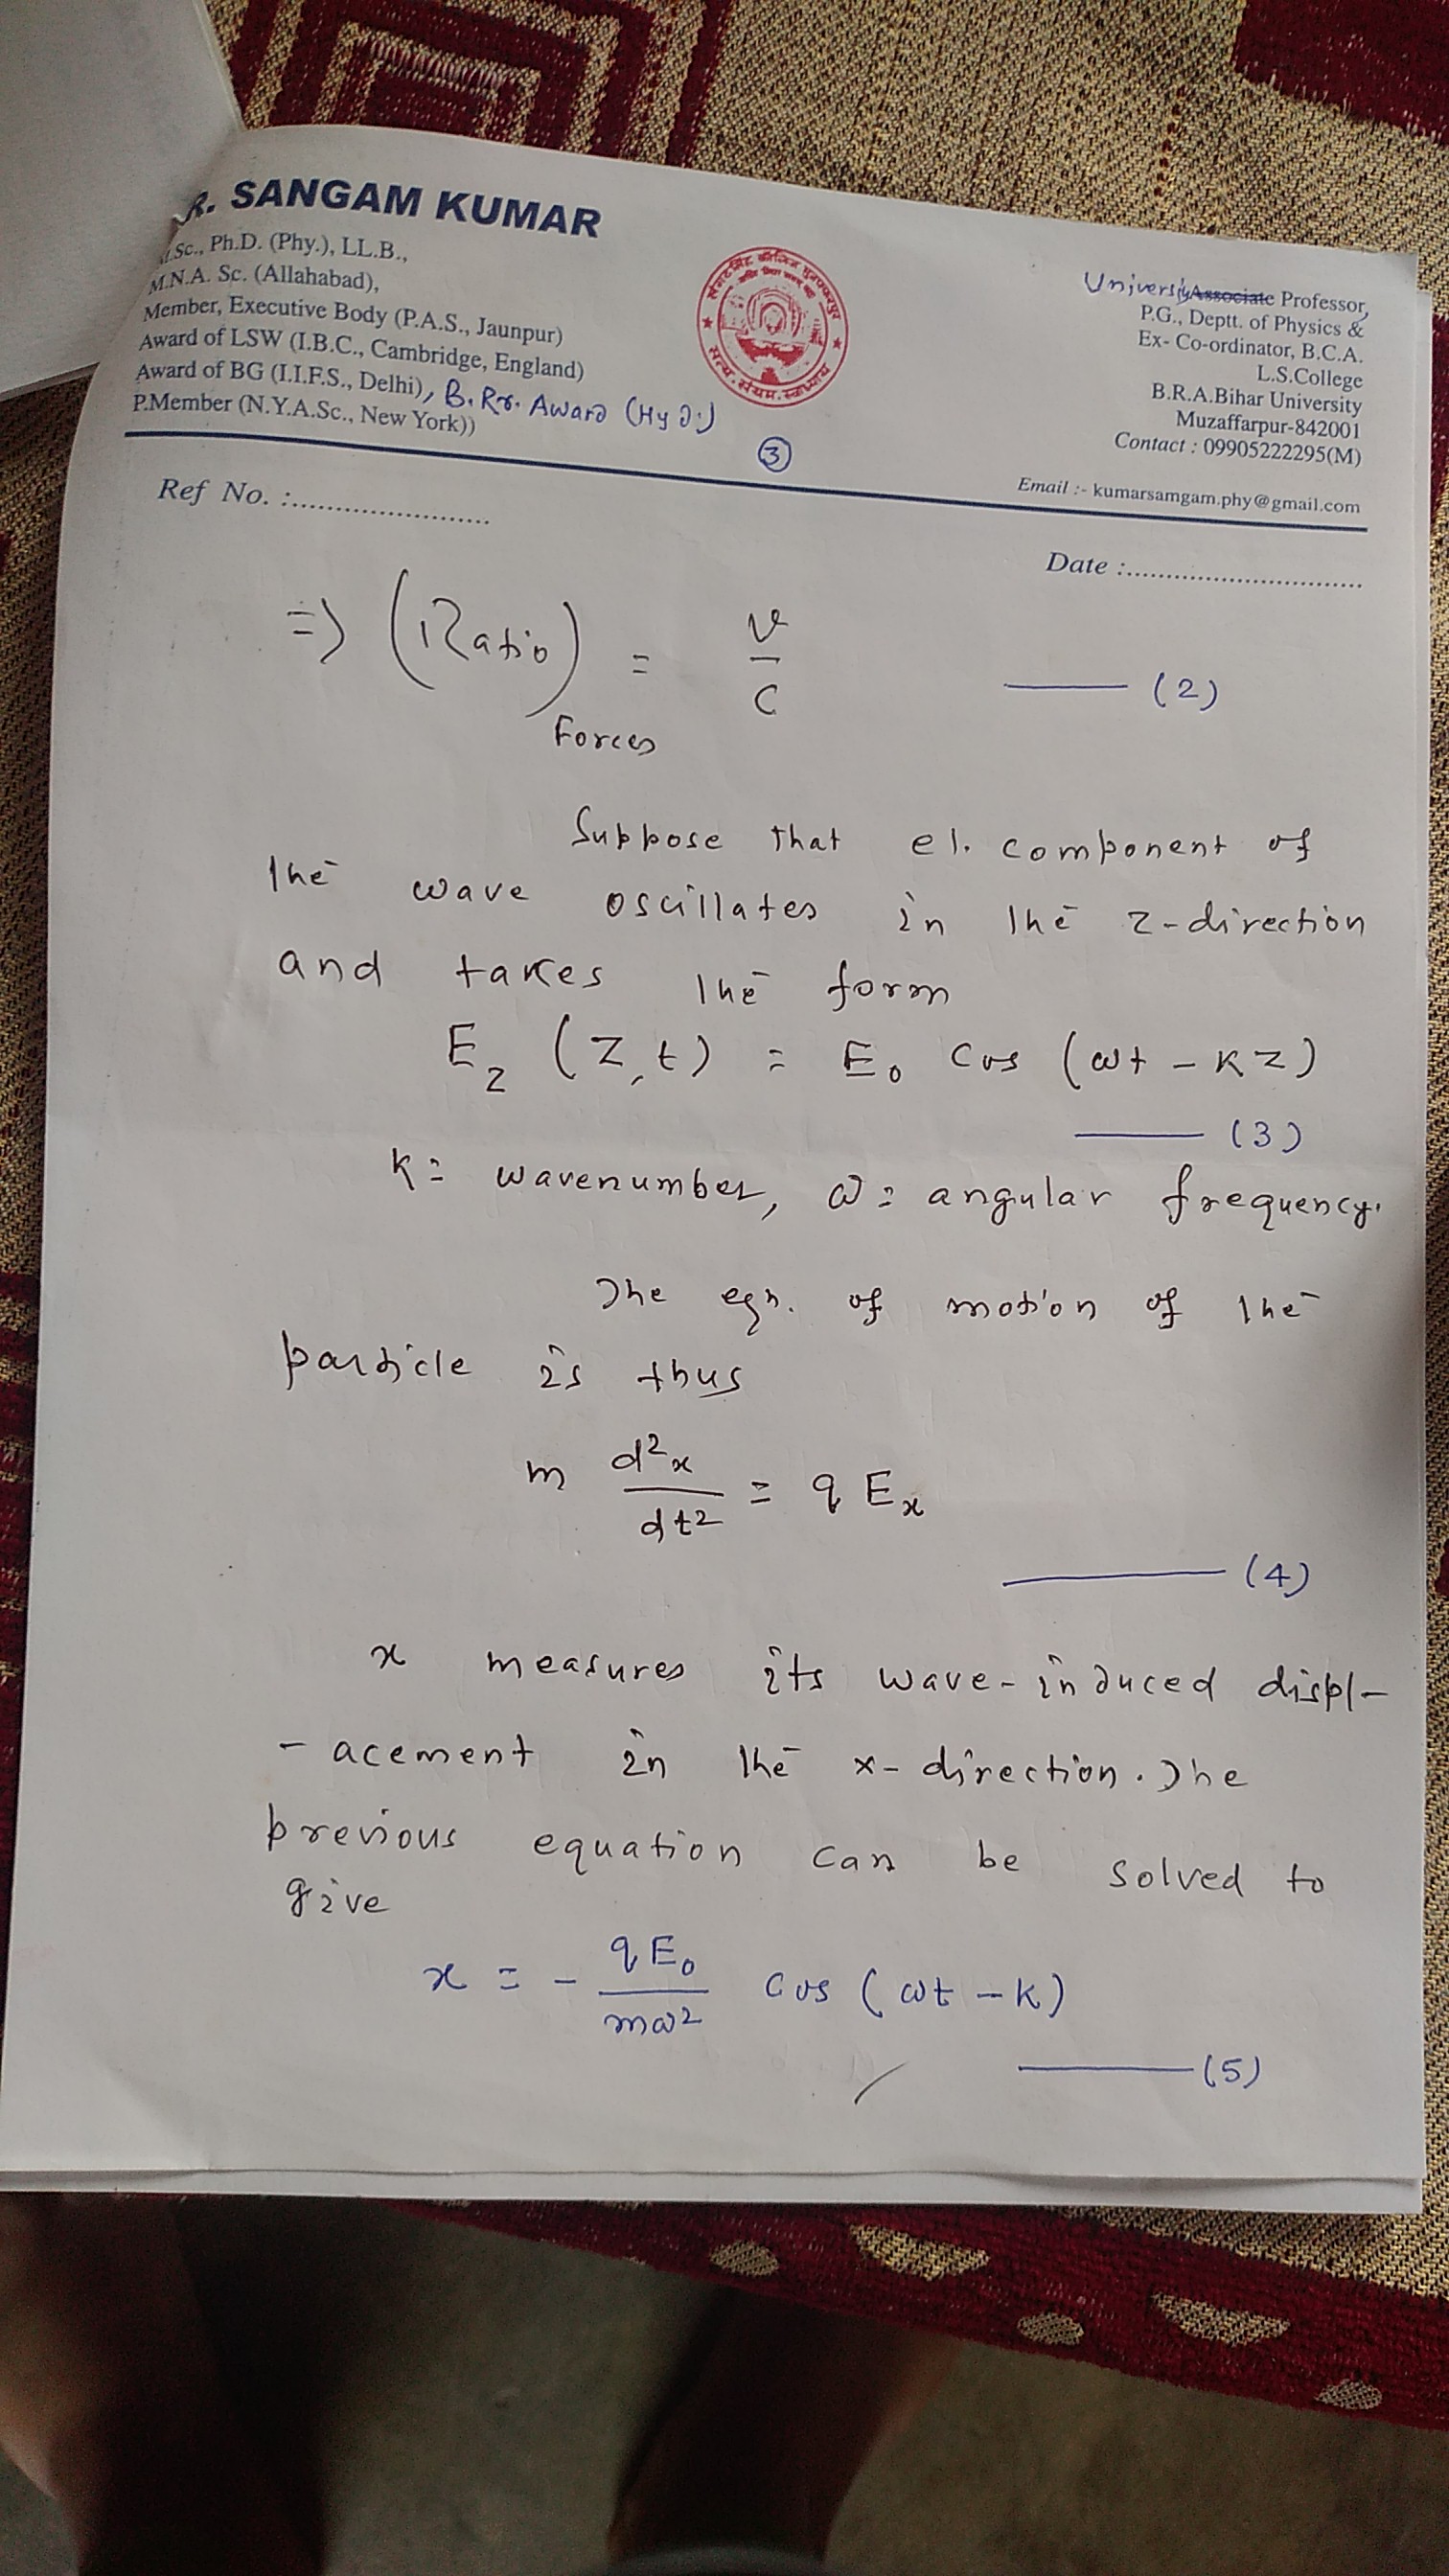 R. SANGAM KUMAR
M.Sc., Ph.D. (Phy.), LL.B.,
M.N.A. Sc. (Allahabad),
Member, Executive Body (P.A.S., Jaunpur)
Award of LSW (I.B.C., Cambridge, England)
Award of BG (I.I.F.S., Delhi), B. Rr. Award (Hyd.)
P.Member (N.Y.A.Sc., New York))
University Associate Professor,
P.G., Deptt. of Physics &
Ex- Co-ordinator, B.C.A.
L.S.College
B.R.A.Bihar University
Muzaffarpur-842001
Contact : 09905222295(M)
Email :- kumarsamgam.phy@gmail.com
3
Ref No. :.......................
Date :..............................
=> (Ratio) Forces = v/c —— (2)
Suppose that el. component of
the wave oscillates in the z-direction
and takes the form
E_z (z,t) = E₀ Cos (ωt - kz)
—— (3)
k = wavenumber, ω = angular frequency.
The eqn. of motion of the
particle is thus
m d²x/dt² = q E_x
—— (4)
x measures its wave-induced displ-
- acement in the x-direction. The
previous equation can be solved to
give
x = - qE₀/mω² cos (ωt - k)
—— (5)